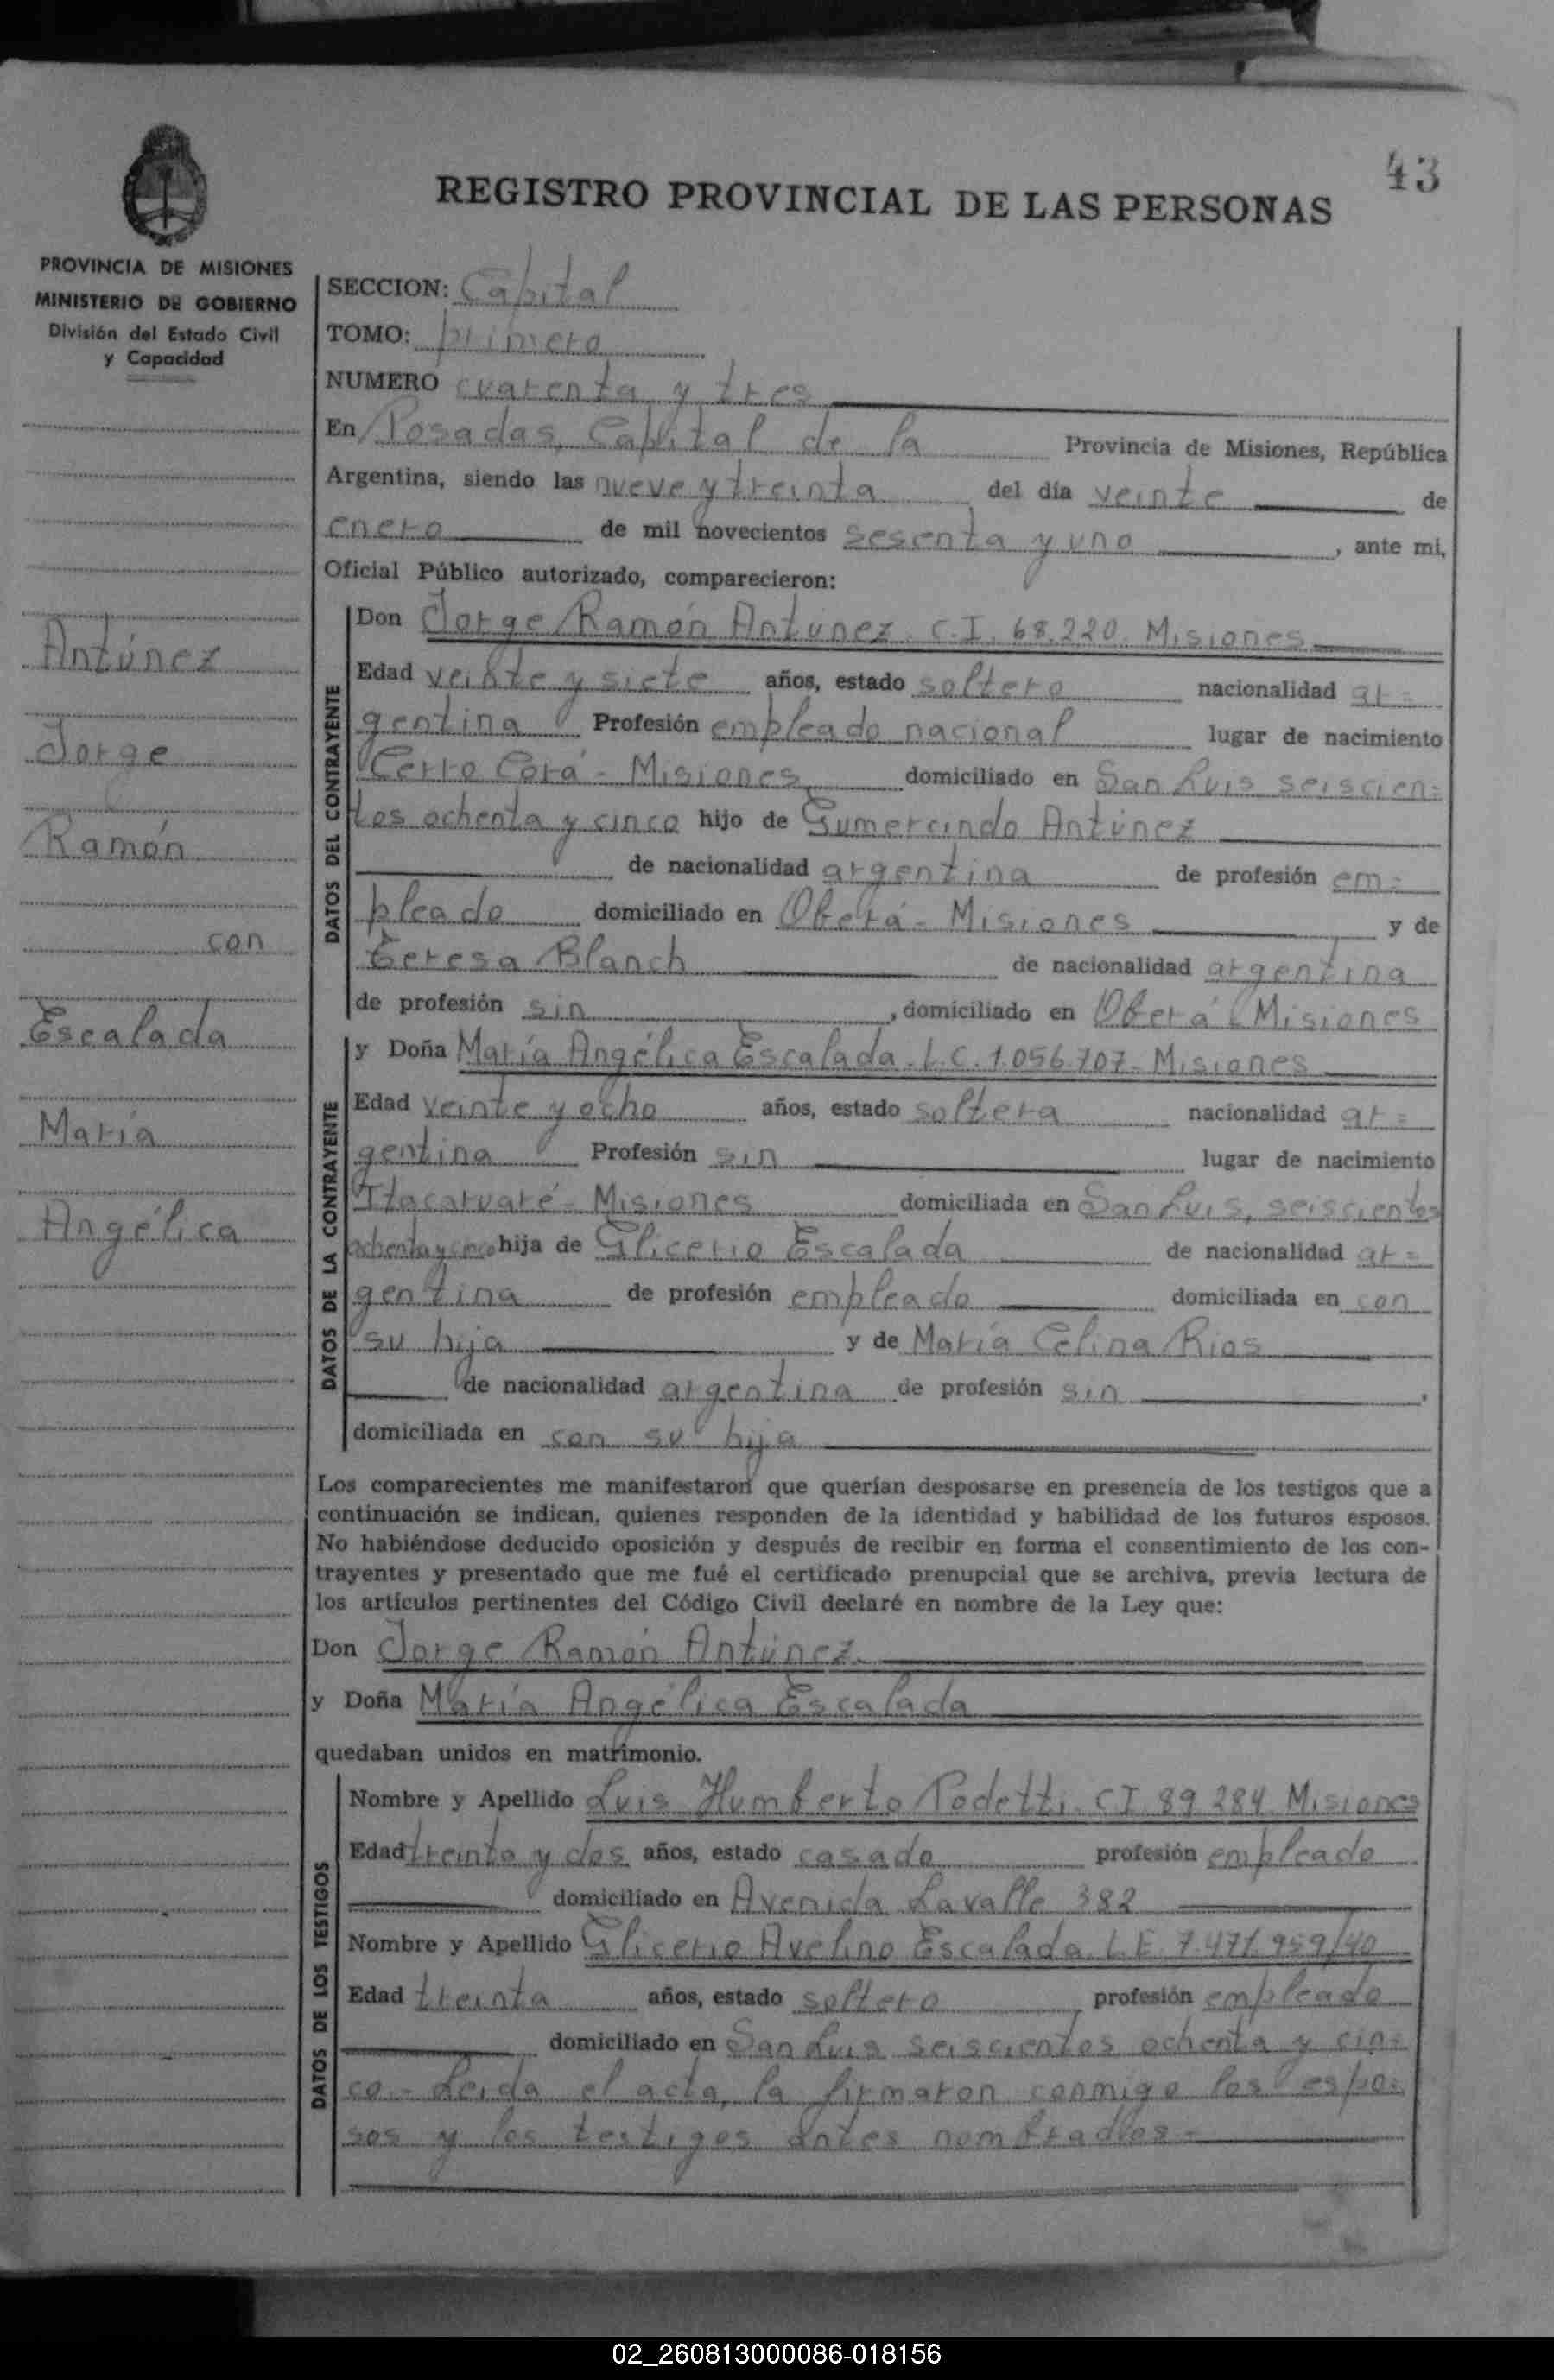 43
REGISTRO PROVINCIAL DE LAS PERSONAS
PROVINCIA DE MISIONES
MINISTERIO DE GOBIERNO
División del Estado Civil
y Capacidad
Antúnez
Jorge
Ramón
con
Escalada
María
Angélica
SECCION: Capital
TOMO: primero
NUMERO cuarenta y tres
En Posadas, Capital de la Provincia de Misiones, República
Argentina, siendo las nueve y treinta del día veinte de
enero de mil novecientos sesenta y uno, ante mi,
Oficial Público autorizado, comparecieron:
DATOS DEL CONTRAYENTE
Don Jorge Ramón Antunez. C.I. 68.220. Misiones
Edad veinte y siete años, estado soltero nacionalidad ar=
gentina Profesión empleado nacional lugar de nacimiento
Cerro Corá - Misiones domiciliado en San Luis seiscien=
tos ochenta y cinco hijo de Gumercindo Antúnez
de nacionalidad argentina de profesión em=
pleado domiciliado en Oberá - Misiones y de
Teresa Blanch de nacionalidad argentina
de profesión sin, domiciliado en Oberá - Misiones
DATOS DE LA CONTRAYENTE
y Doña María Angélica Escalada. L.C. 1.056.707. Misiones
Edad veinte y ocho años, estado soltera nacionalidad ar=
gentina Profesión sin lugar de nacimiento
Itacaruaré - Misiones domiciliada en San Luis, seiscientos
ochenta y cinco hija de Glicerio Escalada de nacionalidad ar=
gentina de profesión empleado domiciliada en con
su hija y de María Celina Rios
de nacionalidad argentina de profesión sin,
domiciliada en con su hija
Los comparecientes me manifestaron que querían desposarse en presencia de los testigos que a
continuación se indican, quienes responden de la identidad y habilidad de los futuros esposos.
No habiéndose deducido oposición y después de recibir en forma el consentimiento de los con-
trayentes y presentado que me fué el certificado prenupcial que se archiva, previa lectura de
los artículos pertinentes del Código Civil declaré en nombre de la Ley que:
Don Jorge Ramón Antúnez.
y Doña María Angélica Escalada
quedaban unidos en matrimonio.
DATOS DE LOS TESTIGOS
Nombre y Apellido Luis Humberto Podetti. CI 89.284. Misiones
Edad treinta y dos años, estado casado profesión empleado
domiciliado en Avenida Lavalle 382
Nombre y Apellido Glicerio Avelino Escalada. L.E. 7.471.959/40
Edad treinta años, estado soltero profesión empleado
domiciliado en San Luis seiscientos ochenta y cin=
co - Leida el acta, la firmaron conmigo los espo=
sos y los testigos antes nombrados -
02_260813000086-018156